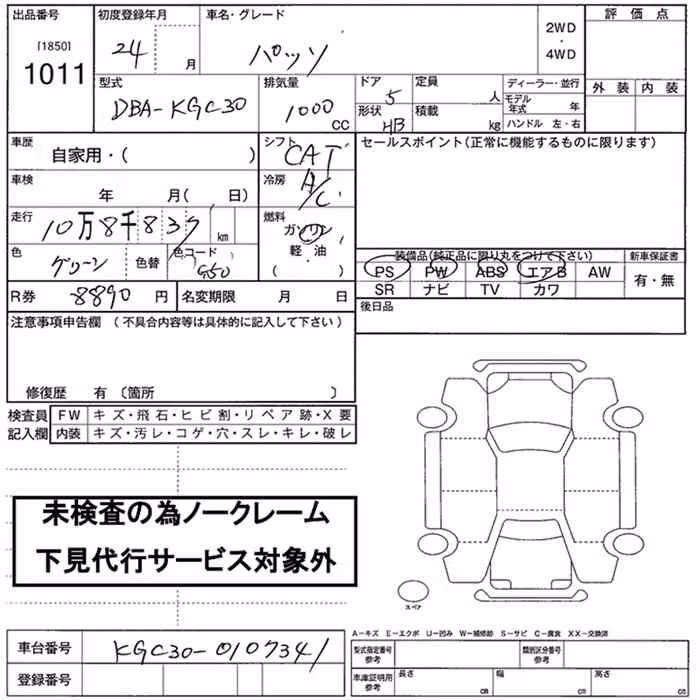 出品番号 初度登録年月 車名・グレード 評価点
[1850] 24 月 パッソ 2WD・4WD
1011
型式 排気量 ドア 5 定員 人 ディーラー・並行 外装 内装
DBA-KGC30 1000 CC 形状 HB 積載 kg モデル年式 年
ハンドル 左・右
車歴 自家用・( ) シフト CAT セールスポイント(正常に機能するものに限ります)
車検 年 月( 日) 冷房 A/C
走行 10万8千837 km 燃料 ガソリン
軽・油
( )
色 グリーン 色替 色コード G50
装備品(純正品に限り丸をつけて下さい) 新車保証書
PS PW ABS エアB AW 有・無
SR ナビ TV カワ
R券 8890 円 名変期限 月 日 後日品
注意事項申告欄 (不具合内容等は具体的に記入して下さい)
修復歴 有 〔箇所 〕
検査員 FW キズ・飛石・ヒビ割・リペア跡・X要
記入欄 内装 キズ・汚レ・コゲ・穴・スレ・キレ・破レ
未検査の為ノークレーム
下見代行サービス対象外
スペア
A-キズ E-エクボ U-凹み W-補修跡 S-サビ C-腐食 XX-交換済
車台番号 KGC30-0107341
登録番号
型式指定番号 参考 類別区分番号 参考
車庫証明用 参考 長さ cm 幅 cm 高さ cm